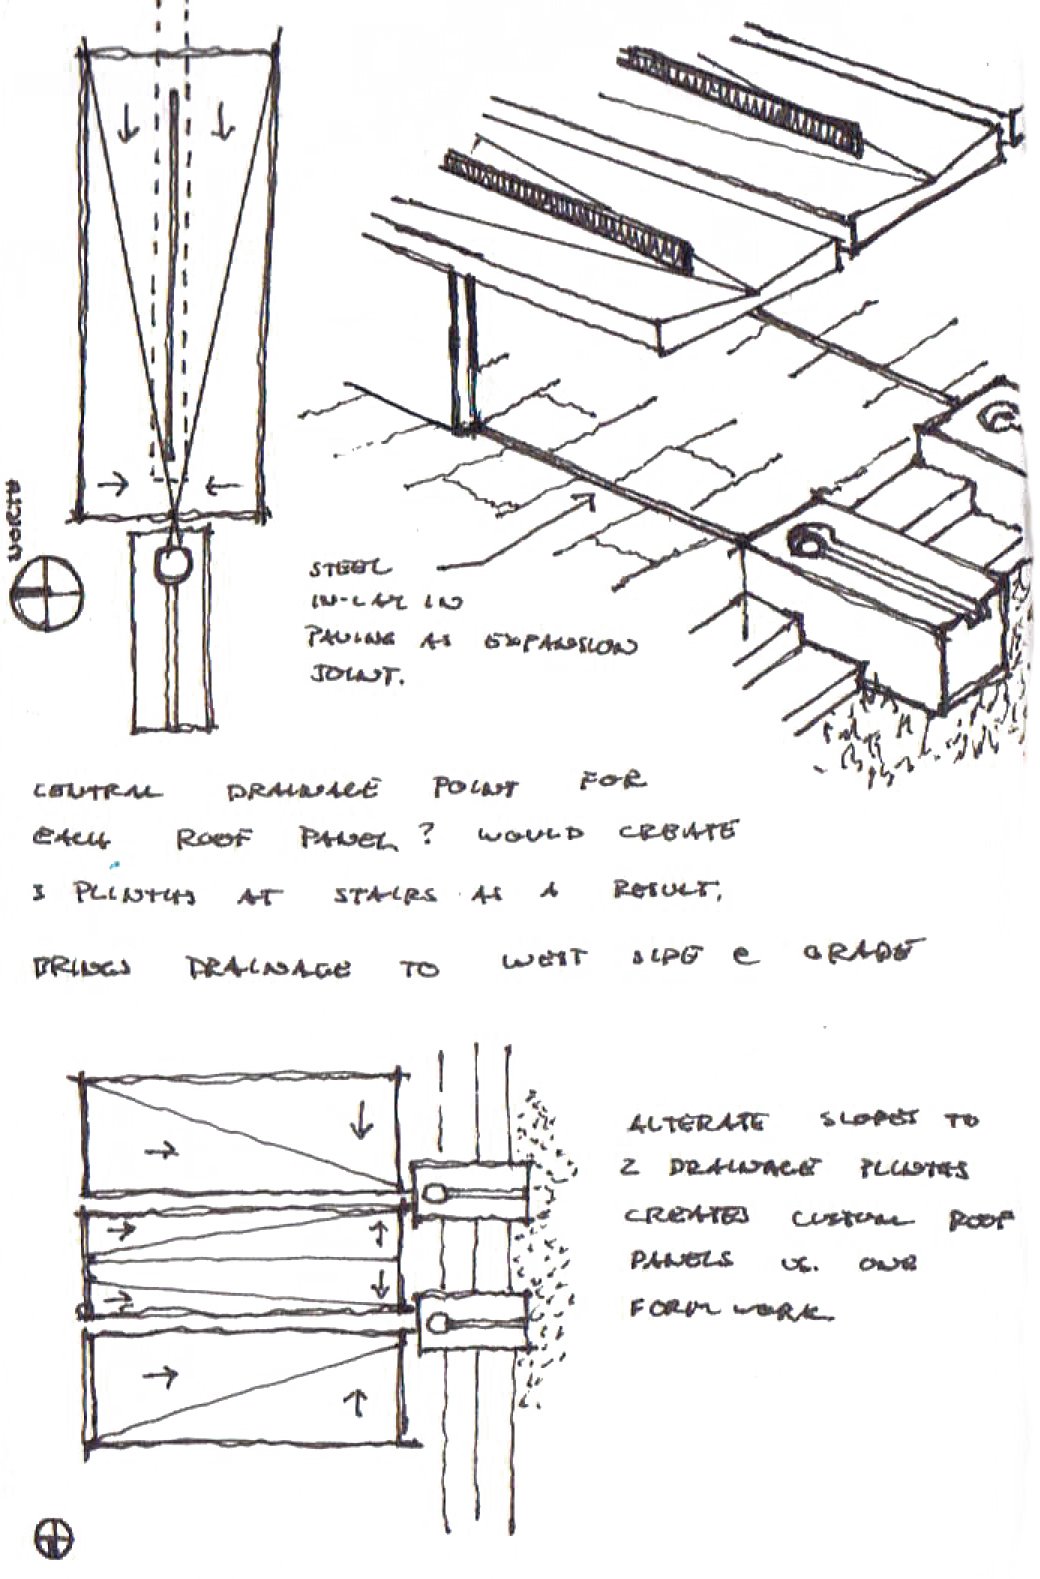 NORTH
STEEL
IN-LAY IN
PAVING AS EXPANSION
JOINT.
CENTRAL DRAINAGE POINT FOR
EACH ROOF PANEL? WOULD CREATE
3 PLINTHS AT STAIRS AS A RESULT.
BRINGS DRAINAGE TO WEST SIDE @ GRADE
ALTERATE SLOPES TO
2 DRAINAGE PLINTHS
CREATES CUSTOM ROOF
PANELS VS. ONE
FORM WORK.